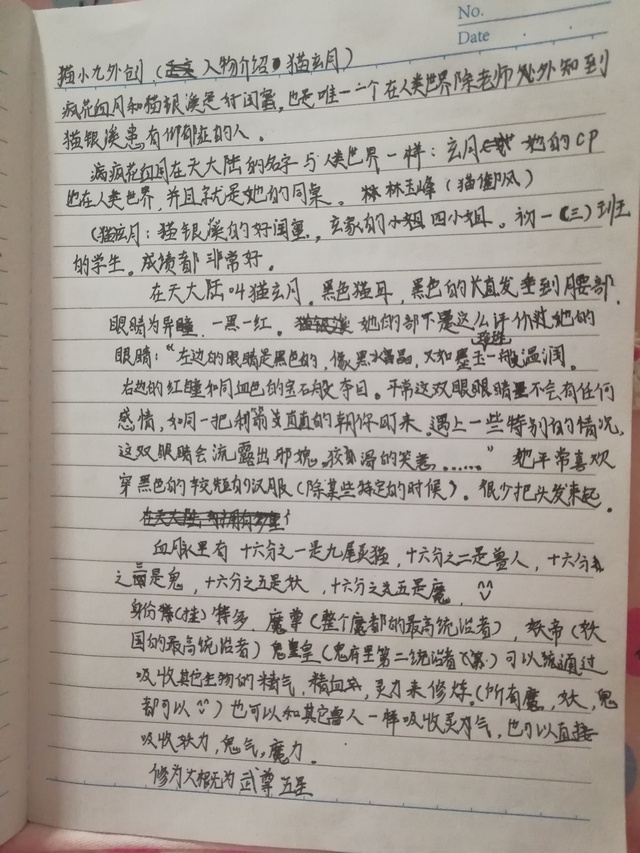 No.
Date
猫小九外创（人物介绍 猫玄月）
疯花玄月和猫银溪是好闺蜜，也是唯一一个在人类世界除老师以外知到
猫银溪患有仰郁症的人。
疯花玄月在天大陆的名字与人类世界一样：玄月 她的CP
也在人类世界，并且就是她的同桌。林玉峰（猫御风）
（猫玄月：猫银溪的好闺蜜，玄家的小姐四小姐。初一（三）班
的学生。成绩都非常好。
在天大陆叫猫玄月。黑色猫耳，黑色的长直发垂到腰部
眼睛为异瞳，一黑一红。她的部下是这么评价她的
眼睛：“左边的眼睛是黑色的，像黑水晶，又如墨玉一般温润。
右边的红瞳和同血色的宝石般夺目。平常这双眼眼睛里不会有任何
感情，如同一把利箭支直直的朝你盯来，遇上一些特别的情况，
这双眼睛会流露出邪魅。狡猾的笑意……”她平常喜欢
穿黑色的较短的汉服（除某些特定的时候）。很少把头发束起。
血脉里有十六分之一是九尾灵猫，十六分之二是兽人，十六分
之三是鬼，十六分之五是妖，十六分之五是魔，
身份（挂）特多，魔尊（整个魔都的最高统治者），妖帝（妖
国的最高统治者）鬼皇（鬼有里第二统治者）可以通过
吸收其它生物的精气，精血，灵力来修炼。（所有魔，妖，鬼
都可以）也可以和其它兽人一样吸收灵气，也可以直接
吸收妖力，鬼气，魔力。
修为大概为武尊五星